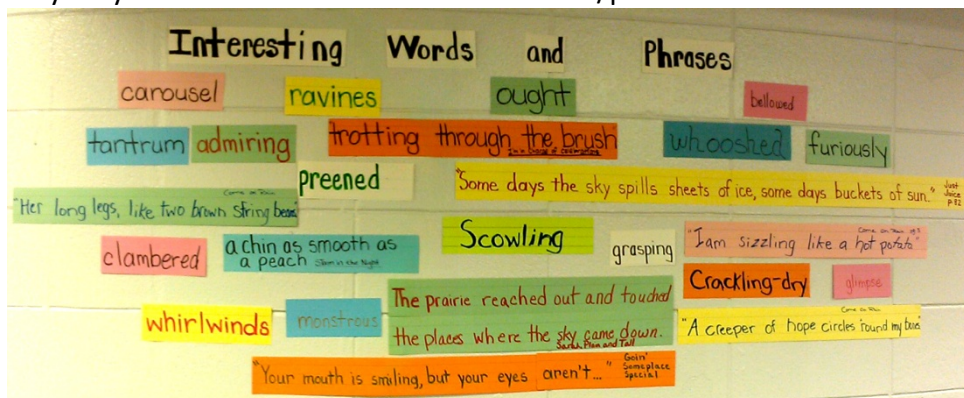 Interesting Words and Phrases
carousel
ravines
ought
bellowed
tantrum
admiring
trotting through the brush
whooshed
furiously
preened
"Some days the sky spills sheets of ice, some days buckets of sun."
Just
Juice
p.82
Come on Rain
"Her long legs, like two brown string beans"
clambered
a chin as smooth as
a peach
Scowling
grasping
Come on Rain
"I am sizzling like a hot potato"
Crackling-dry
glimpse
whirlwinds
monstrous
The prairie reached out and touched
the places where the sky came down.
Sarah, Plain and Tall
Come on Rain
"A creeper of hope circles 'round my bones"
"Your mouth is smiling, but your eyes aren't..."
Goin'
Someplace
Special